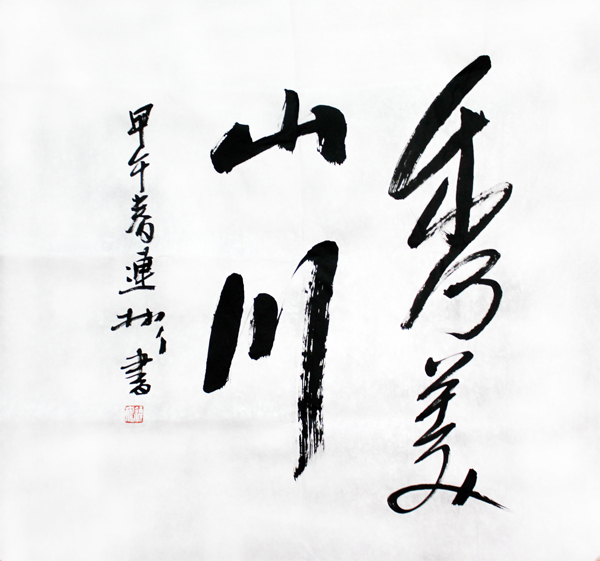 秀美
山川
甲午春連林书